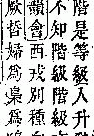 階是等級入升階
不知階級階級
韻會西戎別種
厥哲婦爲梟爲鴟